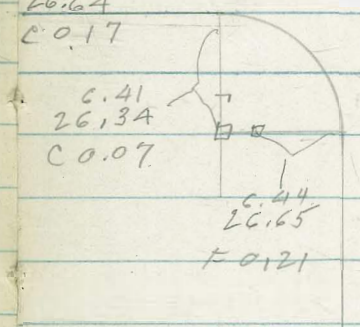 26.64
C 0.17
6.41
26.34
C 0.07
6.44
26.65
F 0.21